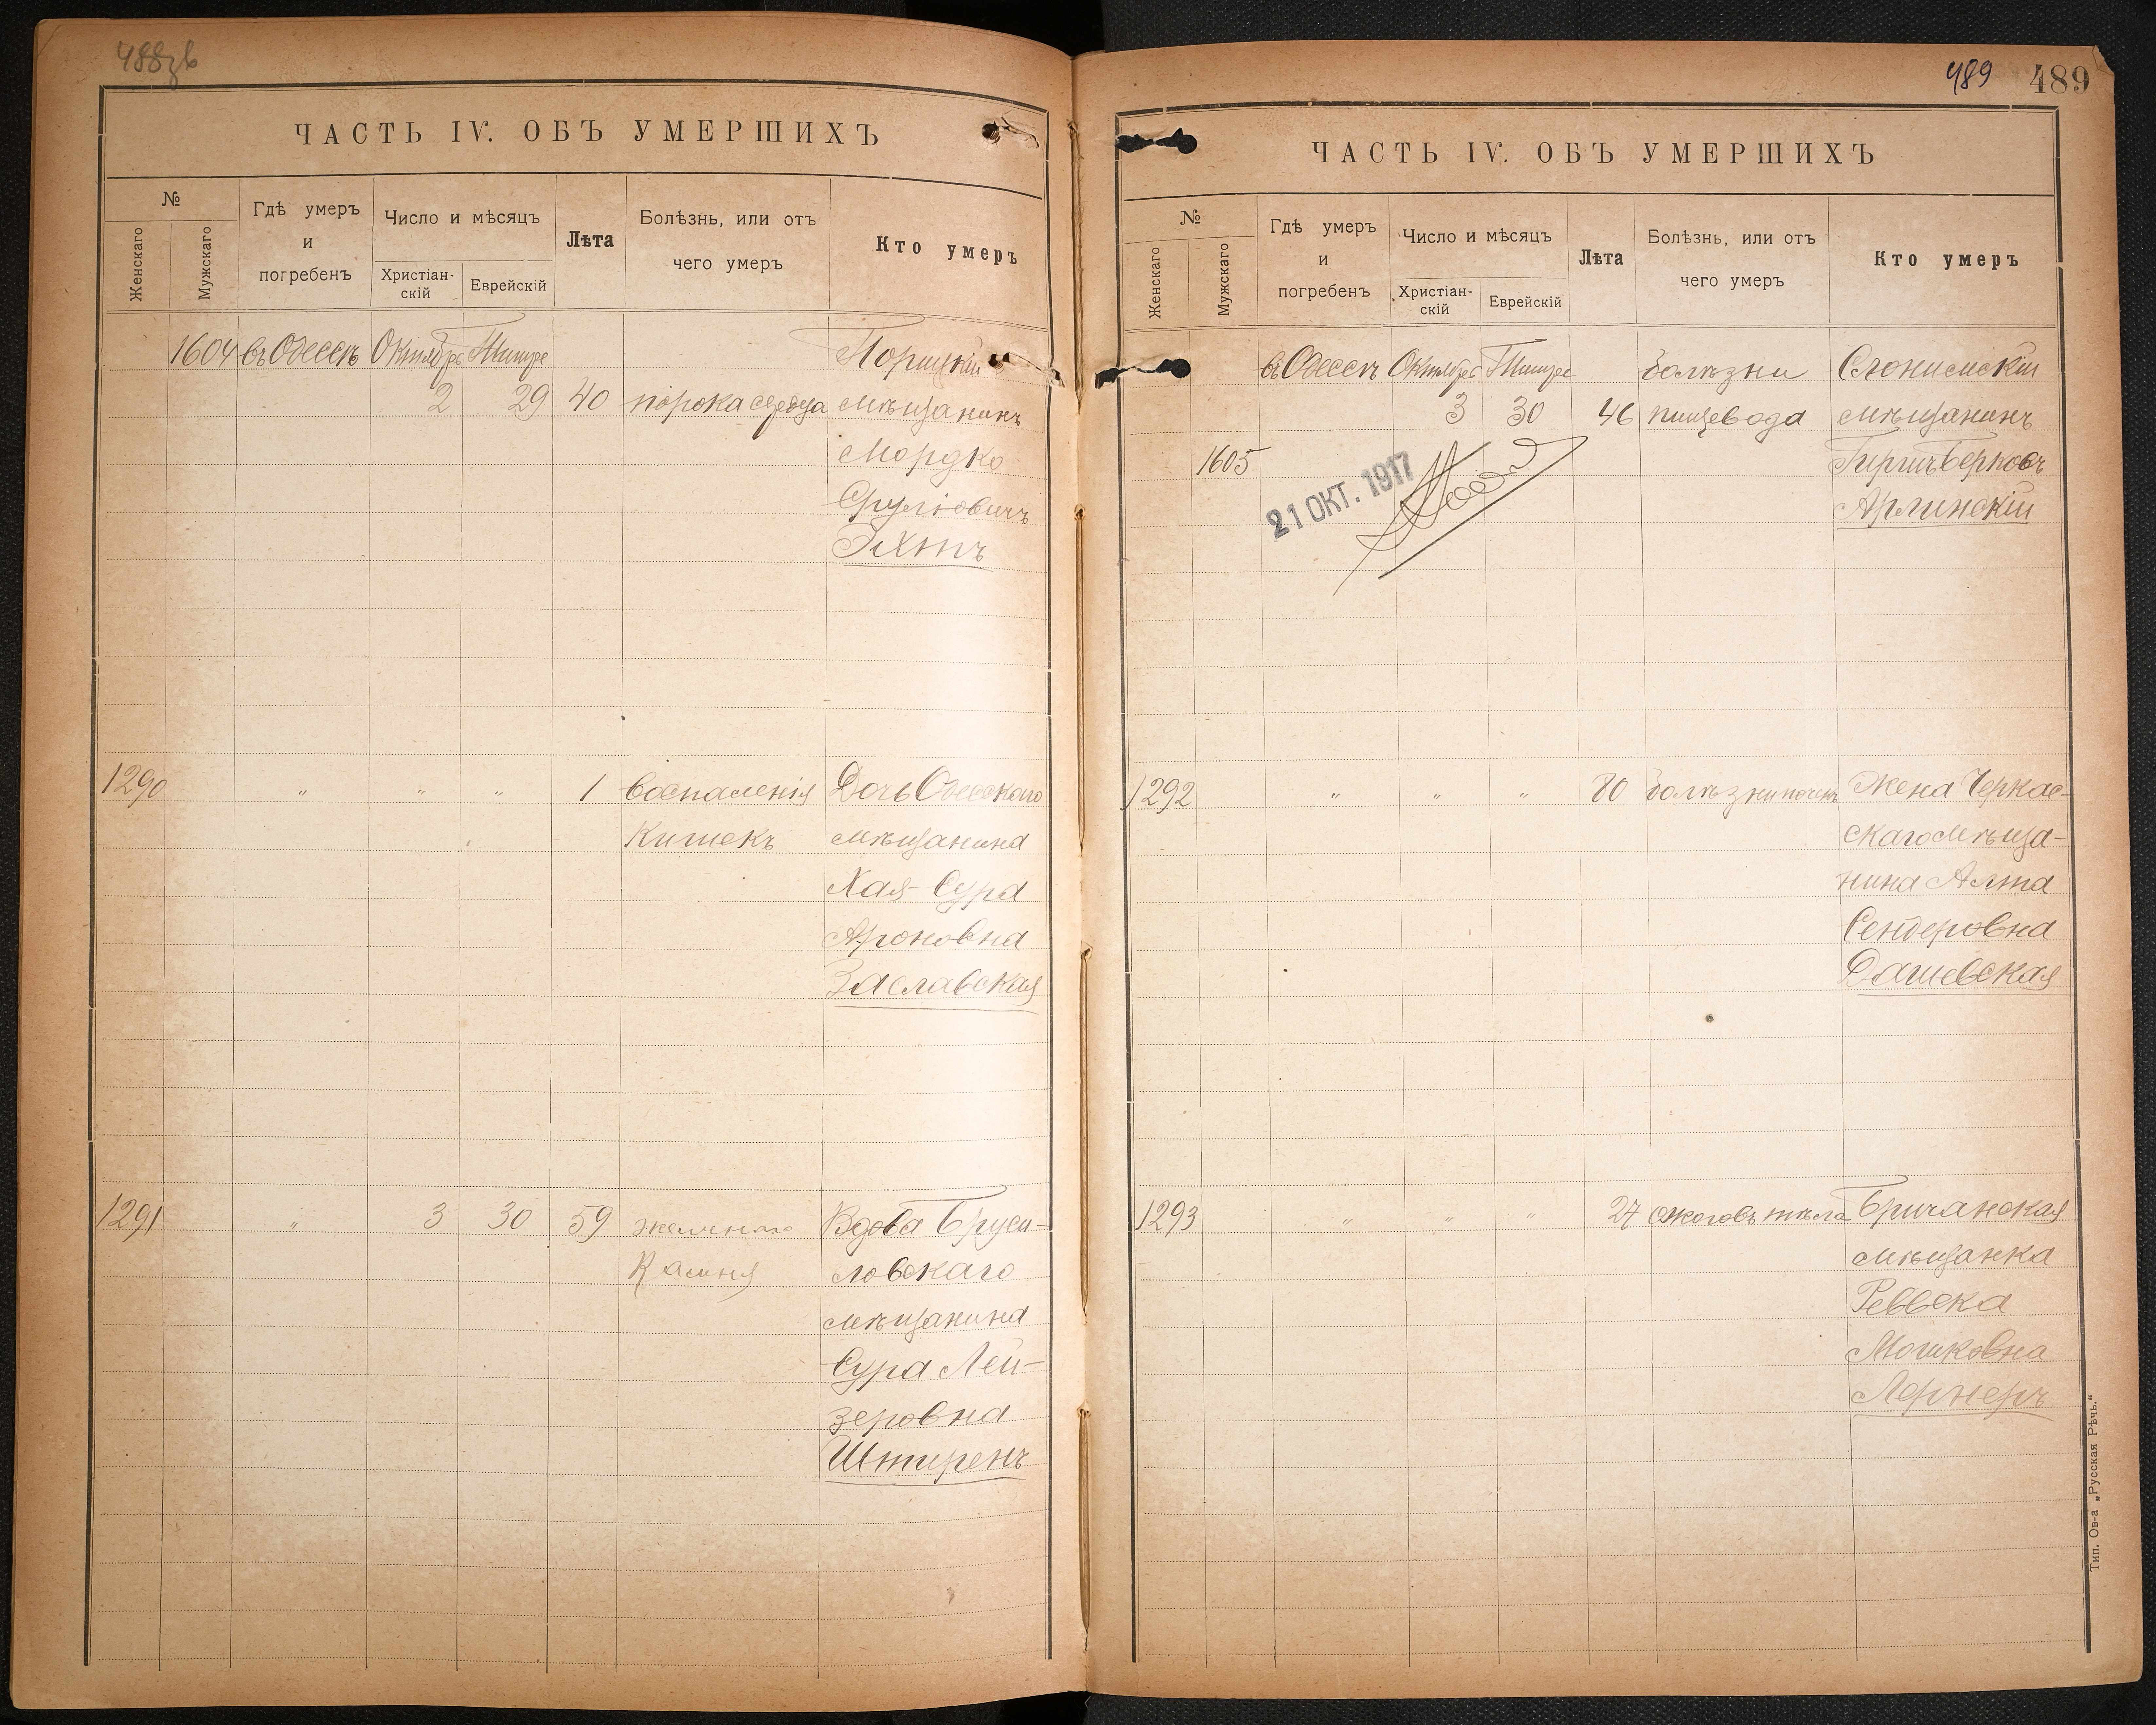 488зв
ЧАСТЬ IV. ОБЪ УМЕРШИХЪ
№
Женскаго
Мужскаго
Гдѣ умеръ
и
погребенъ
Число и мѣсяцъ
Христіан-
скій
Еврейскій
Лѣта
Болѣзнь, или отъ
чего умеръ
Кто умеръ
1604 въ Одессѣ Октября Тишре Порицкій
2 29 40 порока сердца мѣщанинъ
Мордко
Срулiовичъ
Эхтъ
1290 " " " 1 воспаленія Дочь Одесскаго
Кишекъ мѣщанина
Хая-Сура
Ароновна
Заславская
1291 " 3 30 59 желчнаго Вдова Бруси-
Камня ловскаго
мѣщанина
Сура Лей-
зеровна
Штиренъ
489 489
ЧАСТЬ IV. ОБЪ УМЕРШИХЪ
№
Женскаго
Мужскаго
Гдѣ умеръ
и
погребенъ
Число и мѣсяцъ
Христіан-
скій
Еврейскій
Лѣта
Болѣзнь, или отъ
чего умеръ
Кто умеръ
въ Одессѣ Октября Тишре болѣзни Слонимскій
3 30 46 пищевода мѣщанинъ
1605 Гиршъ Берковъ
21 ОКТ. 1917
Арлинскій
1292 " " " 80 болѣзни почекъ Жена Черкас-
скаго мѣща-
нина Алта
Сендеровна
Дашевская
1293 " " " 27 ожоговъ тѣла Бричанская
мѣщанка
Реввека
Мошковна
Лернеръ
Тип. Ов-а „Русская Рѣчь.“